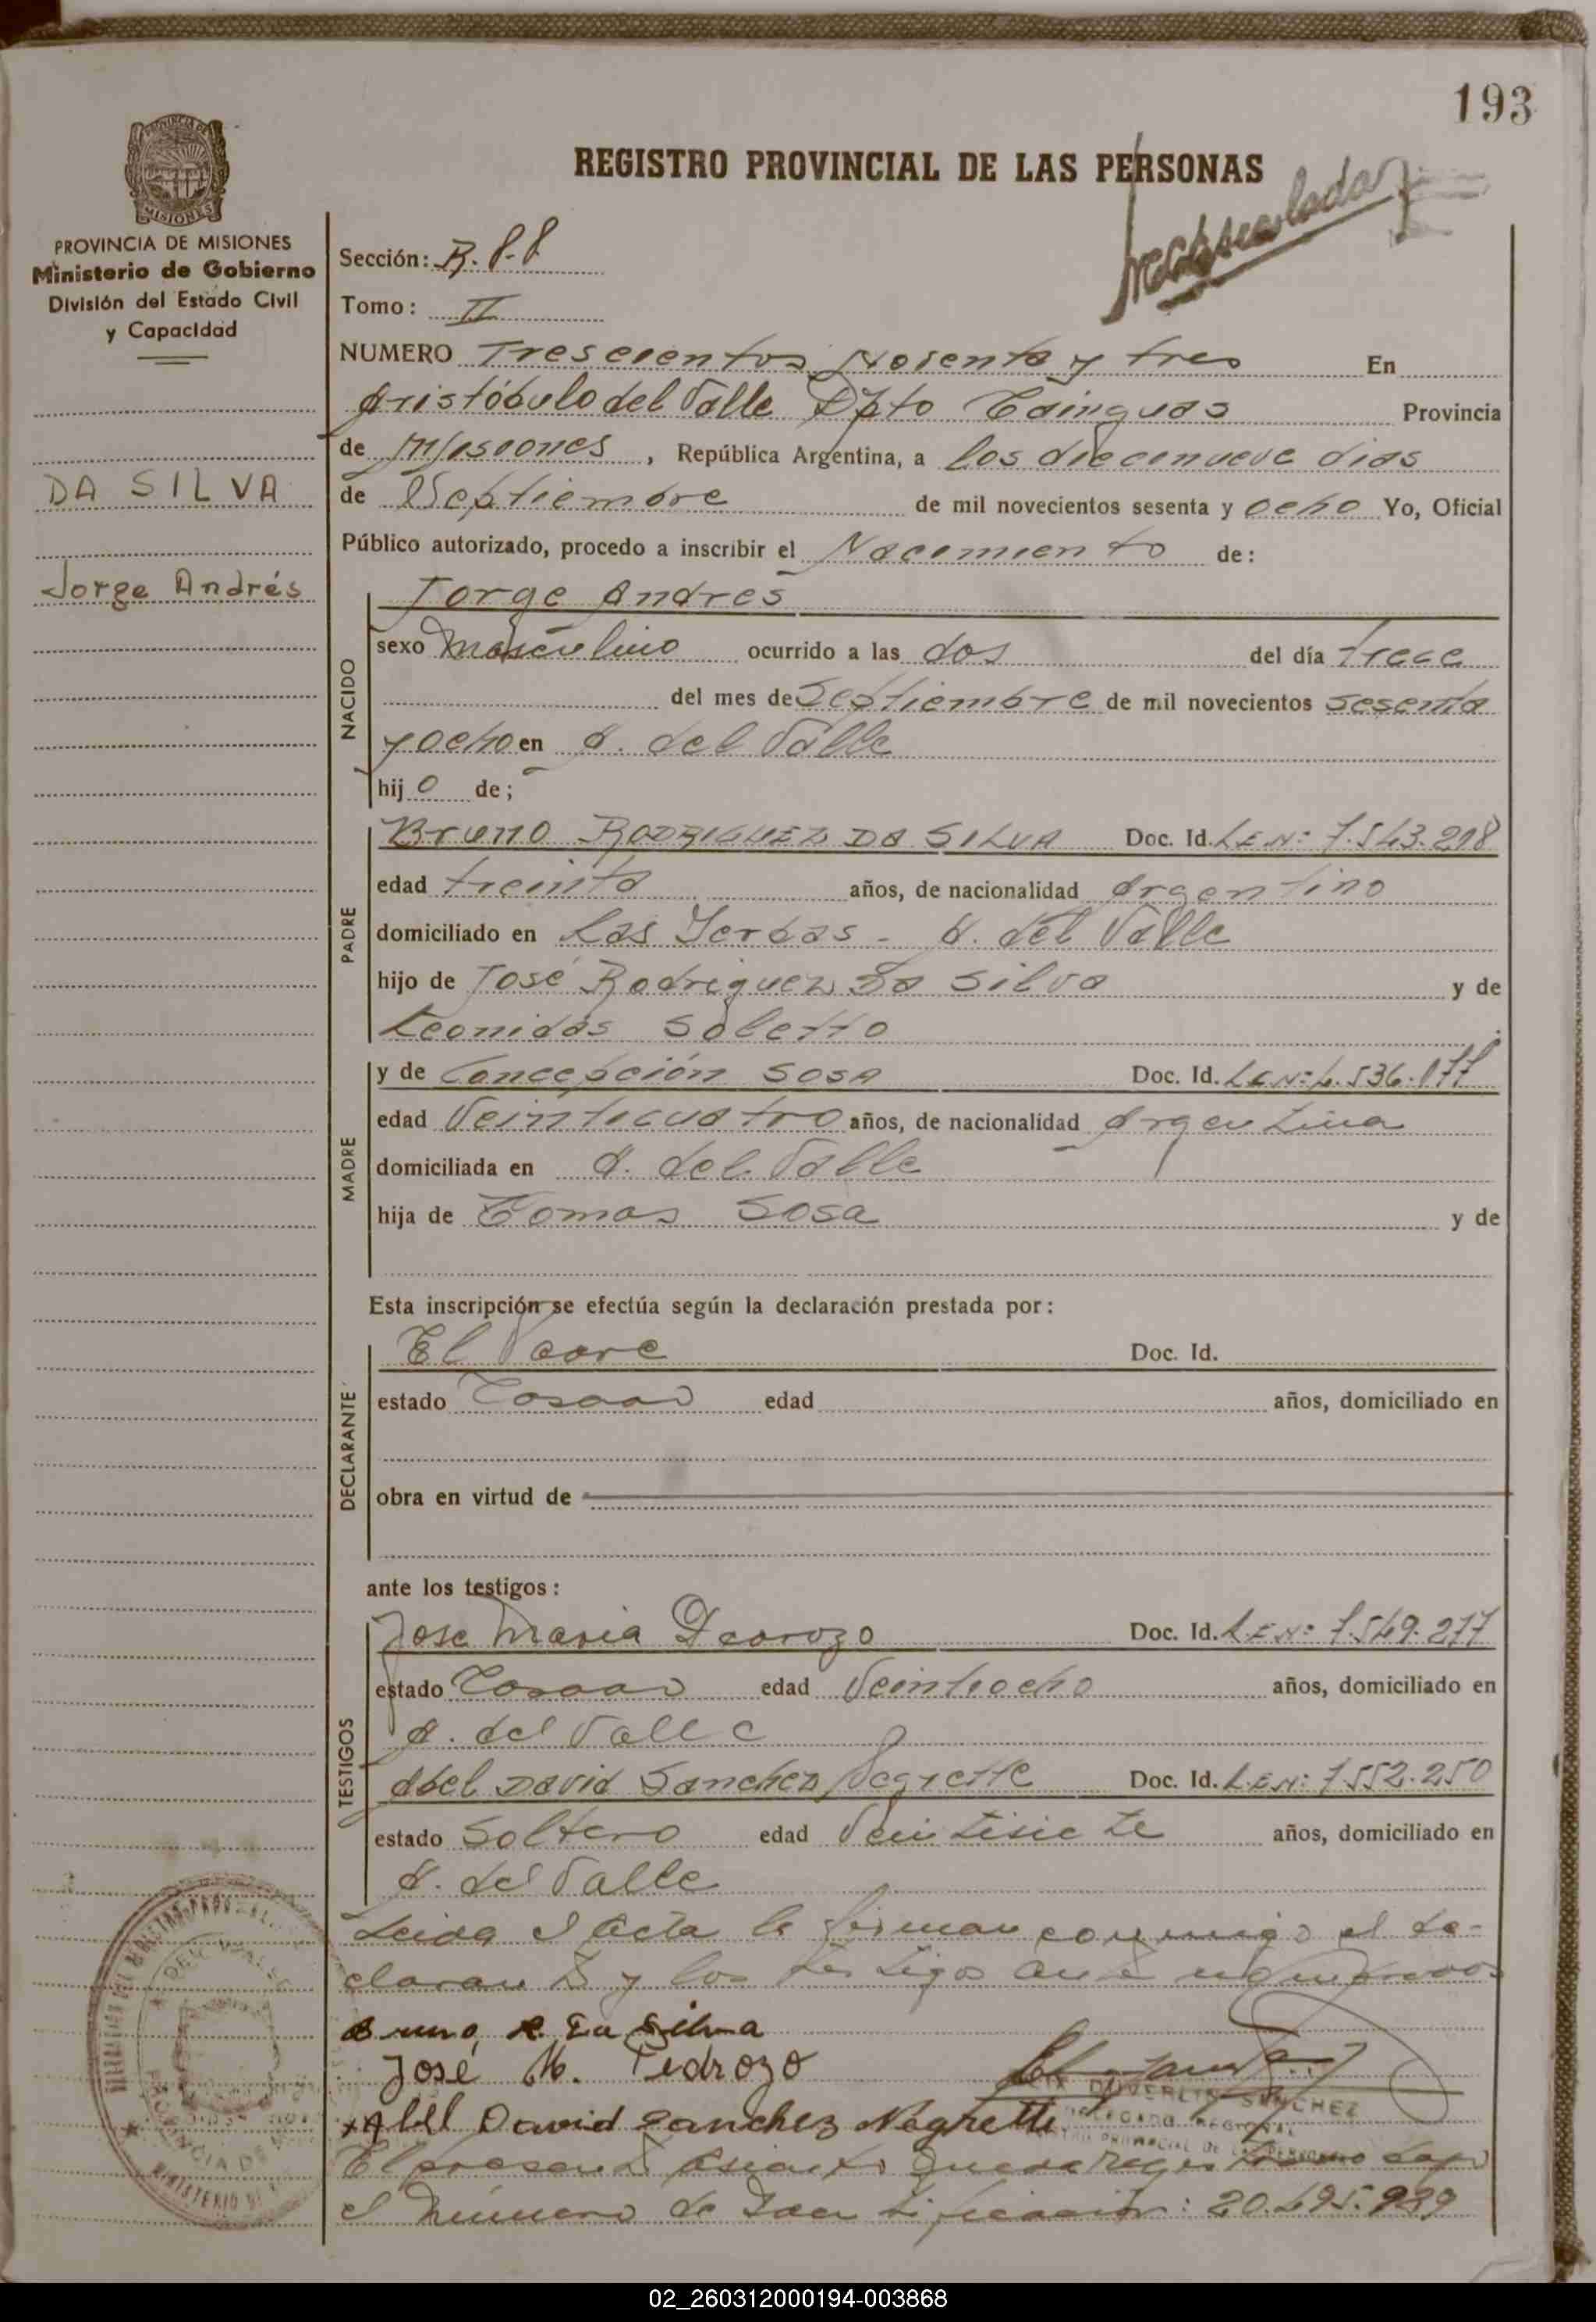 193
REGISTRO PROVINCIAL DE LAS PERSONAS
PROVINCIA DE MISIONES
Ministerio de Gobierno
División del Estado Civil
y Capacidad
DA SILVA
Jorge Andrés
Sección:
Tomo: II
NUMERO Trescientos Noventa y tres En
Aristóbulo del Valle Dpto Cainguas Provincia
de Misiones, República Argentina, a los diecinueve dias
de Septiembre de mil novecientos sesenta y ocho Yo, Oficial
Público autorizado, procedo a inscribir el Nacimiento de:
NACIDO
Jorge Andres
sexo Masculino ocurrido a las dos del día trece
del mes de Septiembre de mil novecientos sesenta
y ocho en A. del Valle
hijo de;
PADRE
Bruno RODRIGUEZ DA SILVA Doc. Id. L.E.Nº: 7.543.298
edad treinta años, de nacionalidad Argentino
domiciliado en Las Yerbas - A. del Valle
hijo de José Rodriguez Da Silva y de
Leonidas Soletto
MADRE
y de Concepción SOSA Doc. Id.
edad Veinticuatro años, de nacionalidad Argentina
domiciliada en A. del Valle
hija de Tomas Sosa y de
Esta inscripción se efectúa según la declaración prestada por:
DECLARANTE
El Padre Doc. Id.
estado Casado edad años, domiciliado en
obra en virtud de
ante los testigos:
TESTIGOS
Jose Maria Pedrozo Doc. Id. L.E.Nº: 7.549.277
estado Casado edad Veintiocho años, domiciliado en
A. del Valle
Abel David Sanchez Negrette Doc. Id. L.E.Nº: 7.552.250
estado Soltero edad Veintisiete años, domiciliado en
A. del Valle
Leida el Acta la firman conmigo el de-
clarante y los testigos ante
Bruno R. Da Silva
José M. Pedrozo
Abel David Sanchez Negrette
DUVERLIS SANCHEZ
El presente Asiento queda registrado bajo
el Número de Identificación: 20.495.939
02_260312000194-003868